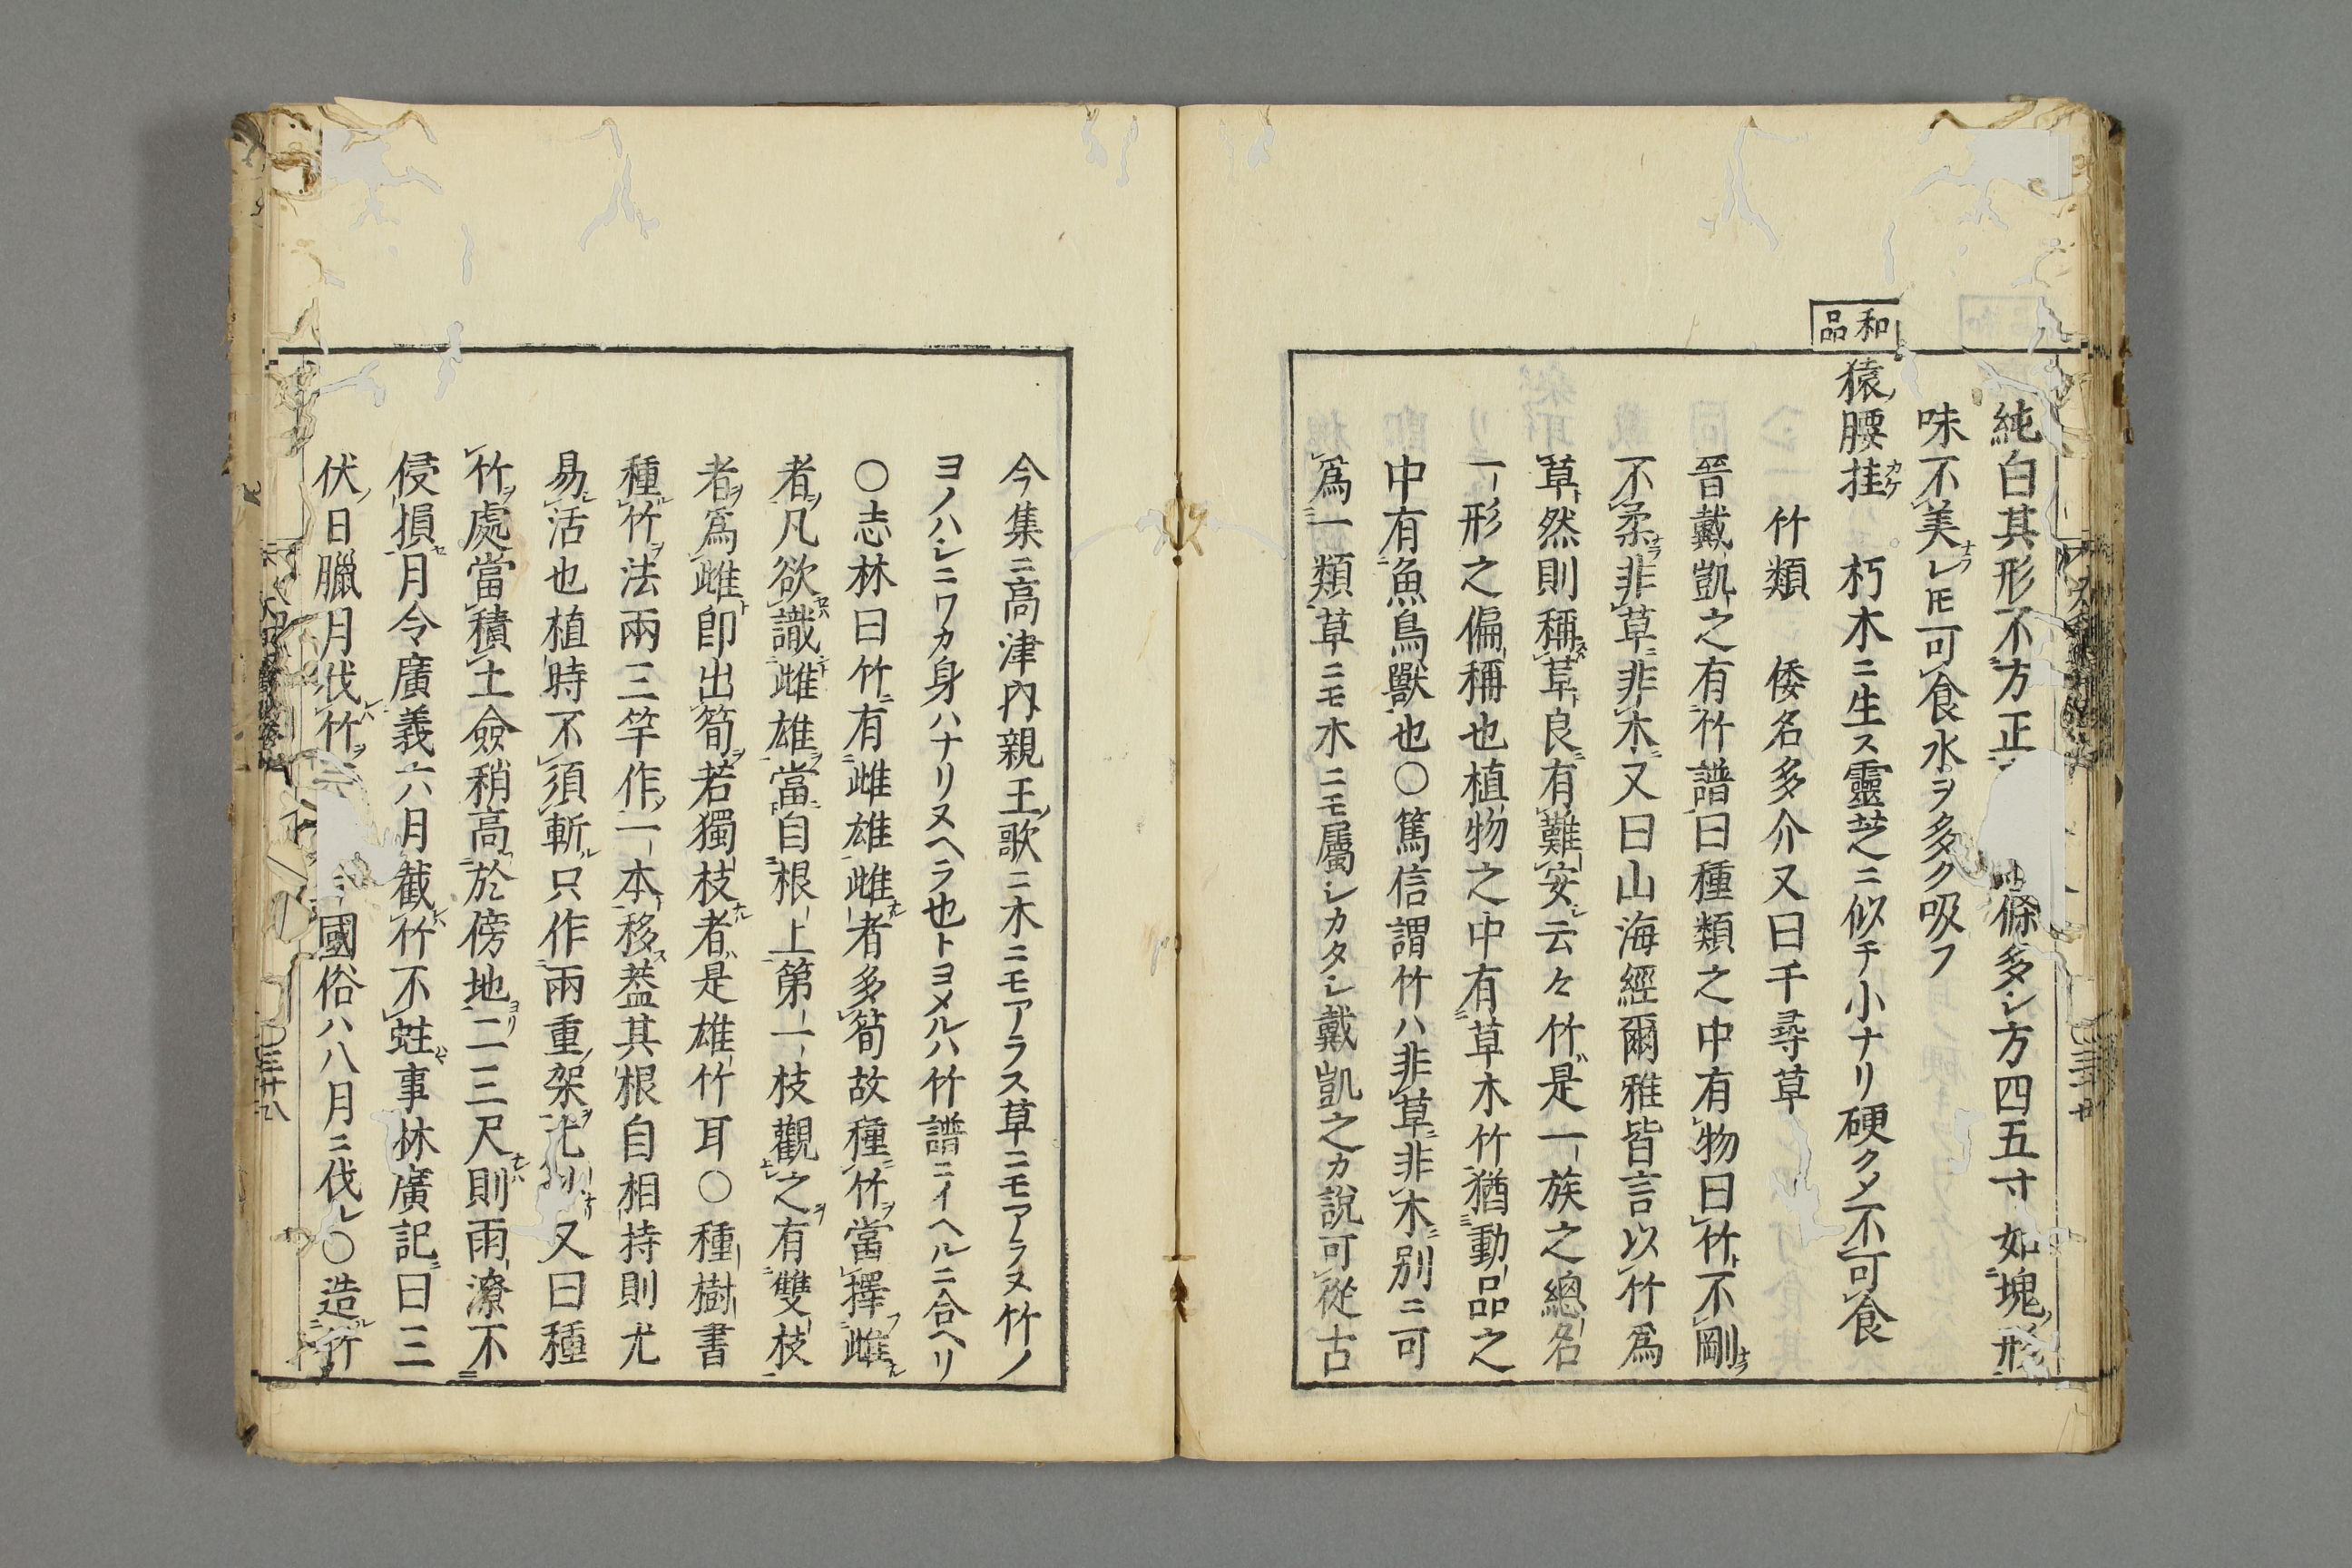 和品
純白其形不方正 條多シ方四五寸如塊形
味不美レ𪜈可食水ヲ多ク吸フ
猿腰挂カケ 朽木ニ生ス靈芝ニ似テ小ナリ硬クメ不可食
竹類 倭名多介又曰千尋草
晉戴凱之有竹譜曰種類之中有物曰竹不剛
不柔非草非木又曰山海經爾雅皆言以竹爲
草然則稱草良有難安云々竹是一族之總名
一形之偏稱也植物之中有草木竹猶動品之
中有魚鳥獸也〇篤信謂竹ハ非草非木別ニ可
爲一類草ニモ木ニモ屬シカタシ戴凱之カ説可從古
今集ニ高津内親王歌ニ木ニモアラス草ニモアラヌ竹ノ
ヨノハシニワカ身ハナリヌヘラ也トヨメルハ竹譜ニイヘルニ合ヘリ
〇志林曰竹有雌雄雌者多筍故種竹當擇雌
者凡欲識雌雄當自根上第一枝觀之有雙枝
者爲雌即出筍若獨枝者是雄竹耳〇種樹書
種竹法兩三竿作一本移葢其根自相持則尤
易活也植時不須斬只作兩重架尤 又曰種
竹處當積土僉稍高於傍地二三尺則雨潦不
侵損月令廣義六月截竹不蛀事林廣記曰三
伏日臘月伐竹 國俗ハ八月ニ伐レ〇造竹